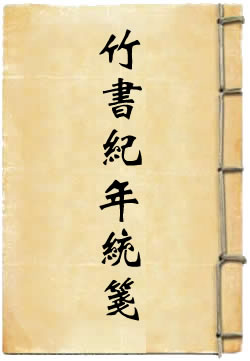 竹書紀年統箋